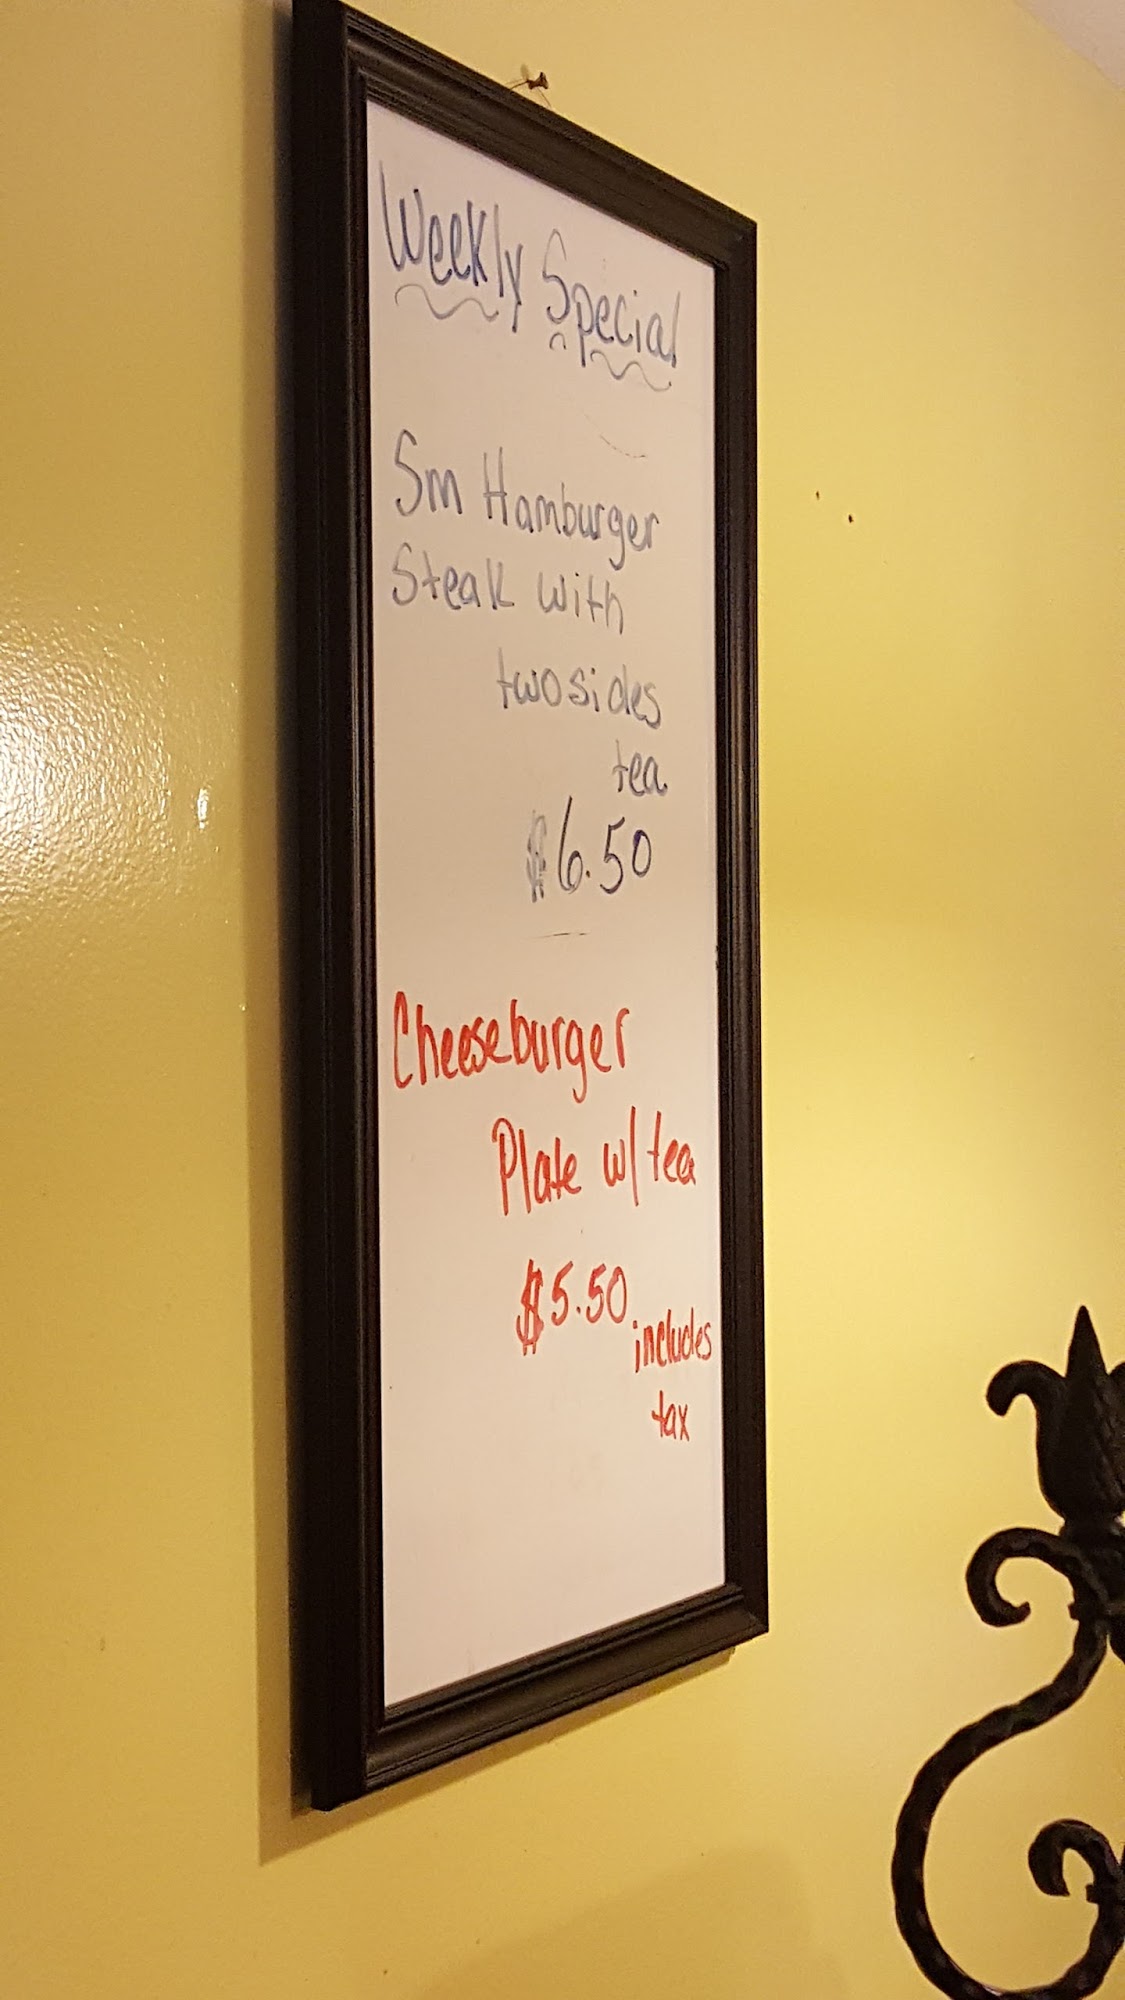 Weekly Special
Sm Hamburger
Steak with
two sides
tea
$6.50
Cheeseburger
Plate w/ tea
$5.50
includes
tax